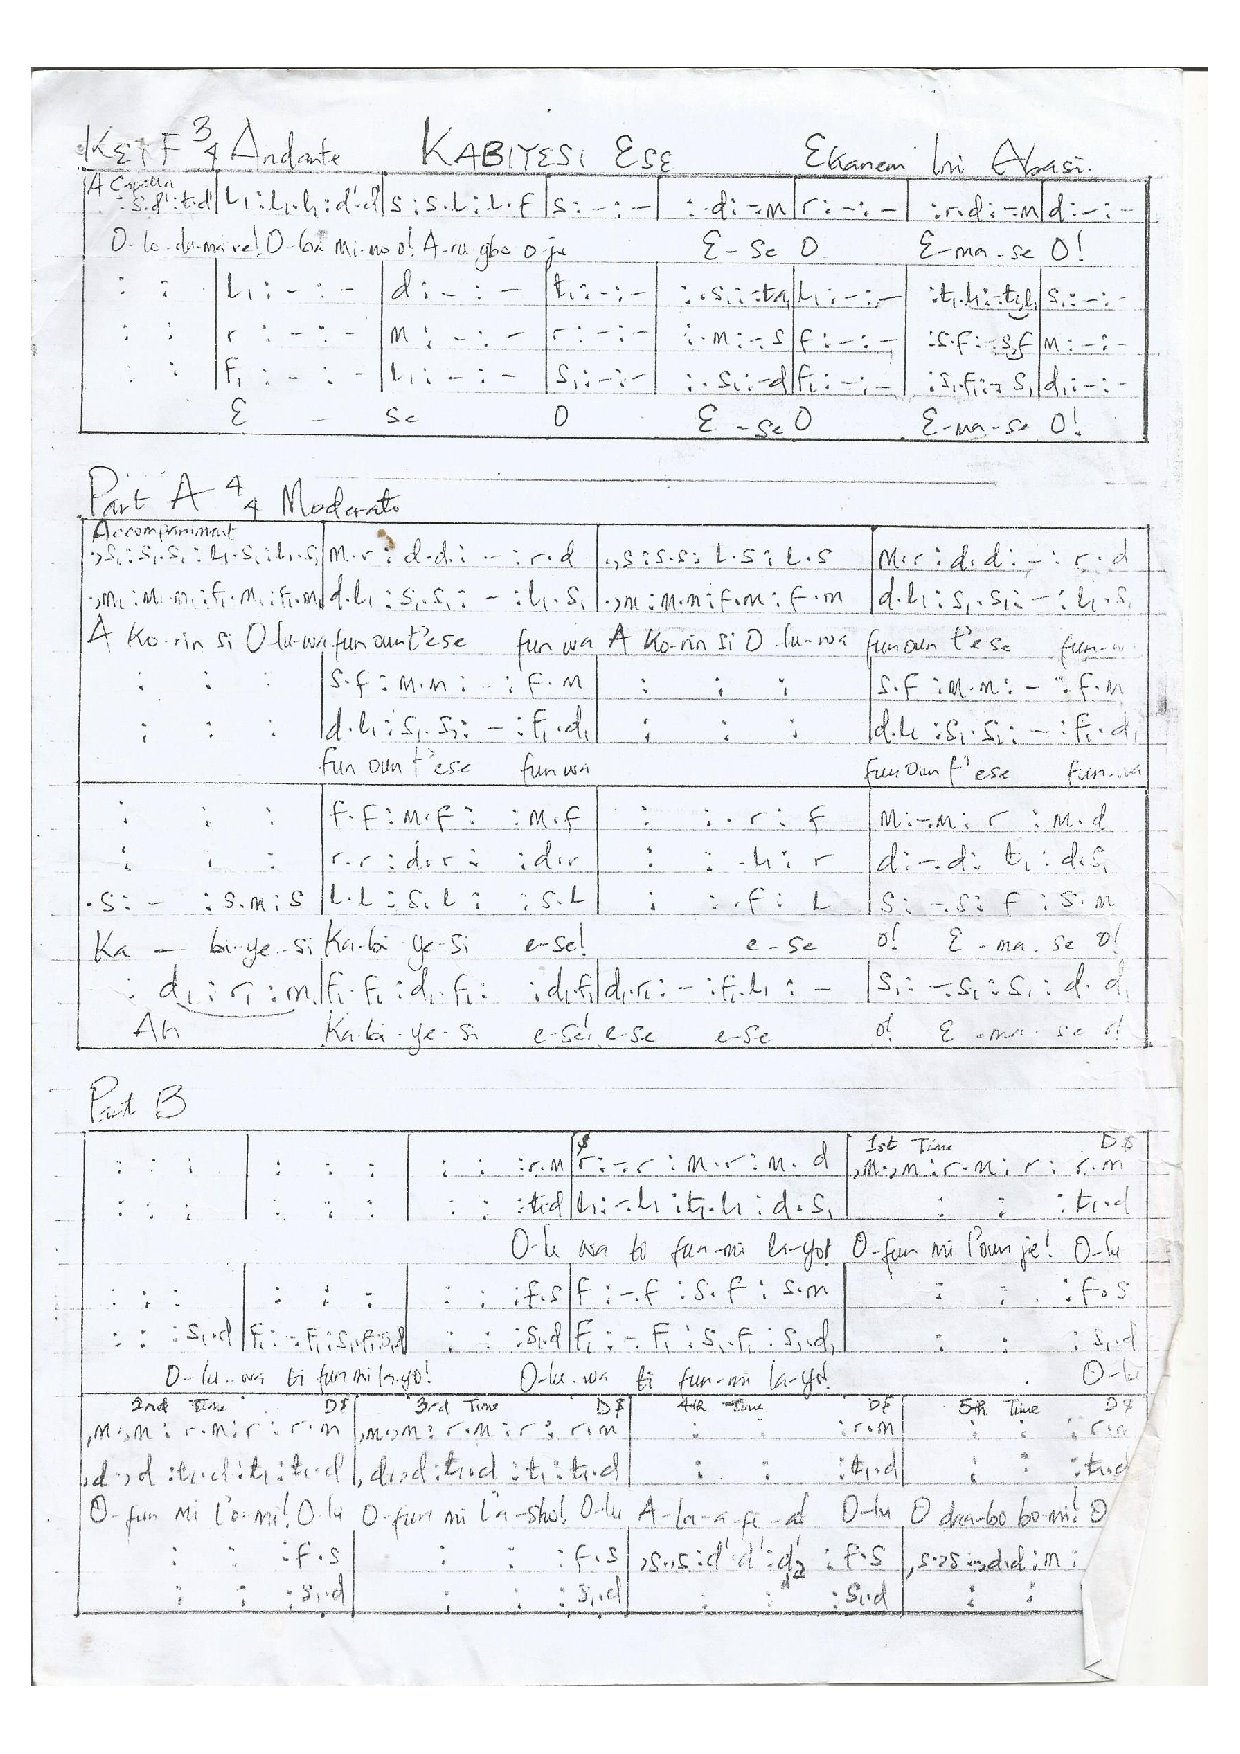 KEY F 3/4 Andante KABIYESI ESE Ekanem Ini Abasi.
A Capella
:s.d':t.d' | l₁:l₁.l₁:d'.d' | s:s.l:l.f | s:-:- | :.d:-.m | r:-:- | :r.d:-.m | d:-:-
O-lo-du-ma-re! O-ba mi-mo o! A-ru gbo o-je E-se O E-ma-se O!
: : | l₁:-:- | d:-:- | t₁:-:- | :.s₁:-.ta₁ | l₁:-:- | :t₁.l₁:-.t₁l₁ | s₁:-:-
: : | r:-:- | m:-:- | r:-:- | :.m:-.s | f:-:- | :s.f:-.s,f | m:-:-
: : | f₁:-:- | l₁:-:- | s₁:-:- | :.s₁:-.d | f₁:-:- | :s₁.f₁:-.s₁ | d₁:-:-
E - se O E-se O E-ma-se O!
Part A 4/4 Moderato
Accompaniment
.,s₁:s₁.s₁:l₁.s₁:l₁.s₁ | m.r:d.d:-:r.d | .,s:s.s:l.s:l.s | m.r:d.d:-:r.d
.,m₁:m₁.m₁:f₁.m₁:f₁.m₁ | d.l₁:s₁.s₁:-:l₁.s₁ | .,m:m.m:f.m:f.m | d.l₁:s₁.s₁:-:l₁.s₁
A Ko-rin si O lu-wa fun oun t'ese fun wa A Ko-rin si O-lu-wa fun oun t'ese fun-w
: : : | s.f:m.m:-:f.m | : : : | s.f:m.m:-:f.m
: : : | d.l₁:s₁.s₁:-:f₁.d₁ | : : : | d.l₁:s₁.s₁:-:f₁.d₁
fun oun t'ese fun wa fun oun t'ese fun-wa
: : : | f.f:m.f: :m.f | : :.r:f | m:-.m:r:m.d
: : : | r.r:d.r: :d.r | : :.l₁:r | d:-.d:t₁:d.s₁
.s:-:s.m:s | l.l:s.l: :s.l | : :.f:l | s:-.s:f:s.m
Ka - bi-ye-si Ka-bi-ye-si e-se! e-se o! E-ma-se o!
: d₁:r₁:m₁ | f₁.f₁:d₁.f₁: :d₁.f₁ | d₁.r₁:-:f₁.l₁:- | s₁:-.s₁:s₁:d.d₁
Ah Ka-bi-ye-si e-se! e-se e-se o! E-ma-se o!
Part B
1st Time D$
: : : | : : : | : : :r.m | $ r:-.r:m.r:m.d | ,m.,m:r.m:r:r.m
: : : | : : : | : : :t₁.d | l₁:-.l₁:t₁.l₁:d.s₁ | : : :t₁.d
O-lu wa to fun-mi la-yo! O-fun mi l'oun je! O-lu
: : : | : : : | : : :f.s | f:-.f:s.f:s.m | : : :f.s
: : :s₁.d | f₁:-.f₁:s₁.f₁:s₁.d₁ | : : :s₁.d | f₁:-.f₁:s₁.f₁:s₁.d₁ | : : :s₁.d
O-lu-wa ti fun mi la-yo! O-lu-wa ti fun-mi la-yo! O-lu
2nd Time D$ 3rd Time D$ 4th Time D$ 5th Time D$
,m.,m:r.m:r:r.m | ,m.,m:r.m:r:r.m | : : :r.m | : : :r.m
,d.,d:t₁.d:t₁:t₁.d | ,d.,d:t₁.d:t₁:t₁.d | : : :t₁.d | : : :t₁.d
O-fun mi l'o-mi! O-lu O-fun mi l'a-sho! O-lu A-la-a-fi-a! O-lu O daa-bo bo-mi! O
: : :f.s | : : :f.s | ,s.,s:d'.d':d' :f.s | ,s.,s:,d.d:m:
: : :s₁.d | : : :s₁.d | : : :s₁.d | : :